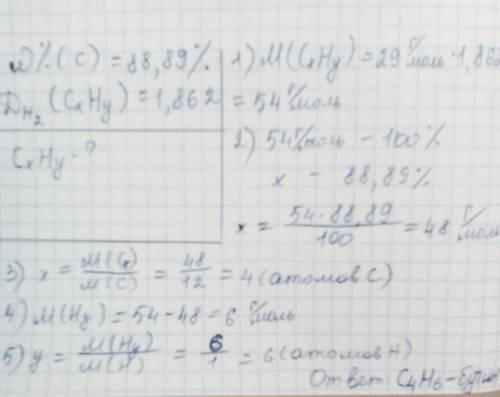 ω%(C) = 88,89%
D H₂ (CxHy) = 1,862
CxHy - ?
1) M(CxHy) = 29 г/моль · 1,862
= 54 г/моль
2) 54 г/моль - 100%
x - 88,89%
x = 54·88,89/100 = 48 г/моль
3) x = M(Cx)/M(C) = 48/12 = 4 (атомов C)
4) M(Hy) = 54 - 48 = 6 г/моль
5) y = M(Hy)/M(H) = 6/1 = 6 (атомов H)
Ответ: C₄H₆ - бутин